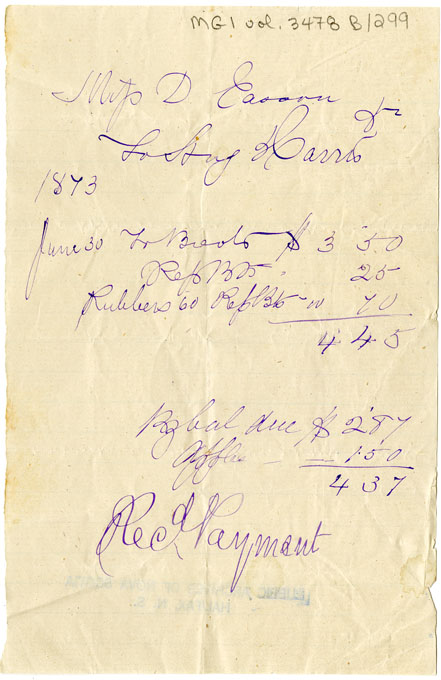 MG1 vol. 3478 B/299
Miss D Eason
Dr
To Hory Harris
1873
June 30 To Boots $ 3 50
Rep Bts " 25
Rubbers 60 Rep Bts 10 70
4 45
By bal due $ 2.87
Apples 1.50
4 37
Recd Payment
PUBLIC ARCHIVES OF NOVA SCOTIA
HALIFAX, N. S.